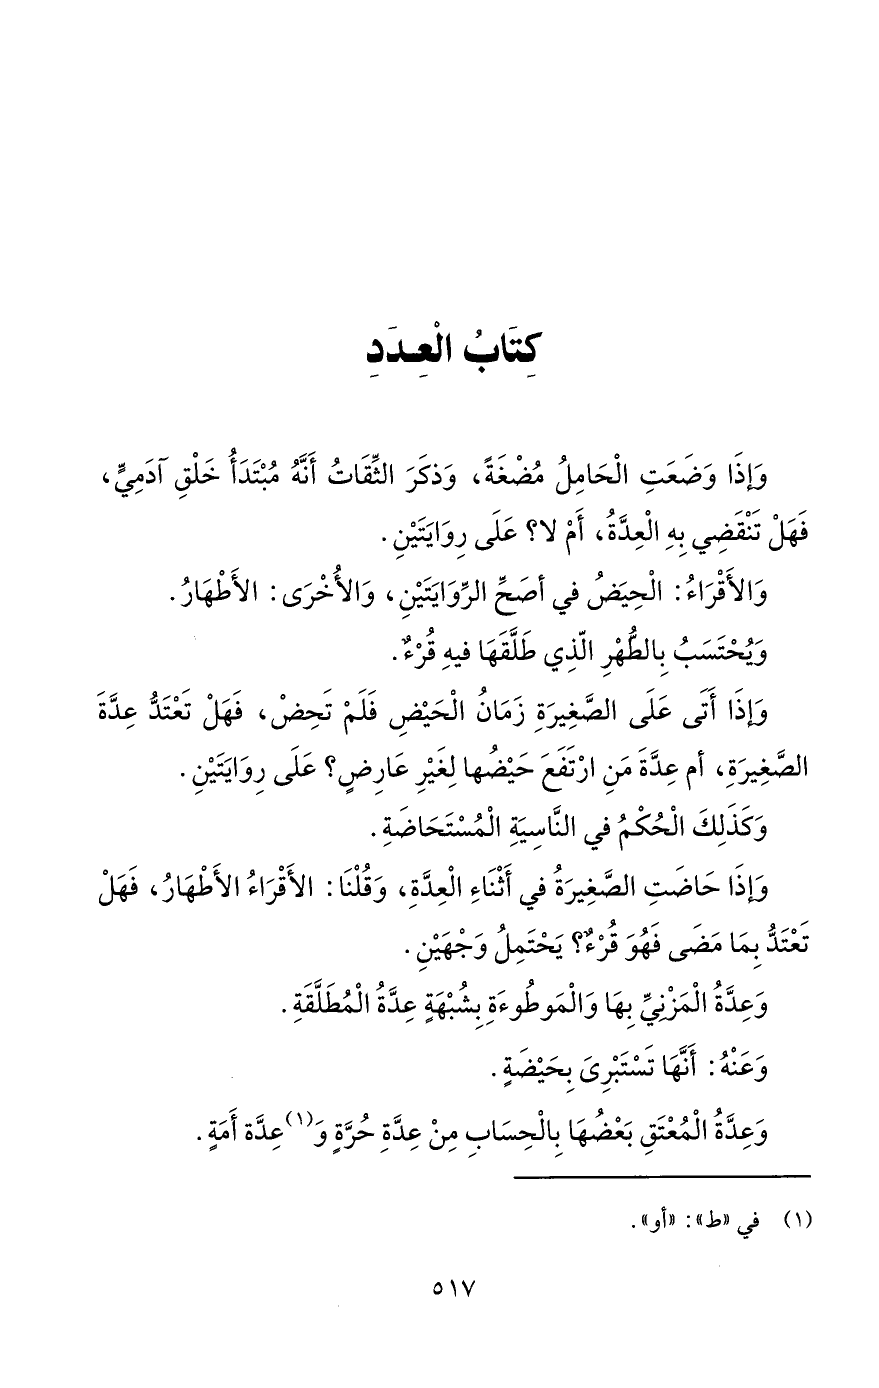 كِتَابُ الْعِدَدِ
وَإِذَا وَضَعَتِ الْحَامِلُ مُضْغَةً، وَذكَرَ الثِّقَاتُ أَنَّهُ مُبْتَدَأُ خَلْقِ آدَمِيٍّ،
فَهَلْ تَنْقَضِي بِهِ الْعِدَّةُ، أَمْ لا؟ عَلَى رِوايَتَيْنِ.
وَالأَقْرَاءُ: الْحِيَضُ في أصَحِّ الرِّوَايَتَيْنِ، وَالأُخْرَى: الأَطْهَارُ.
وَيُحْتَسَبُ بِالطُّهْرِ الّذِي طَلَّقَهَا فيهِ قُرْءٌ.
وَإِذَا أَتَى عَلَى الصَّغِيرَةِ زَمَانُ الْحَيْضِ فَلَمْ تَحِضْ، فَهَلْ تَعْتَدُّ عِدَّةَ
الصَّغِيرَةِ، أم عِدَّةَ مَنِ ارْتَفَعَ حَيْضُها لِغَيْرِ عَارِضٍ؟ عَلَى رِوَايَتَيْنِ.
وَكَذَلِكَ الْحُكْمُ في النَّاسِيَةِ الْمُسْتَحَاضَةِ.
وَإِذَا حَاضَتِ الصَّغِيرَةُ في أَثْنَاءِ الْعِدَّةِ، وَقُلْنَا: الأَقْرَاءُ الأَطْهَارُ، فَهَلْ
تَعْتَدُّ بِمَا مَضَى فَهُوَ قُرْءٌ؟ يَحْتَمِلُ وَجْهَيْنِ.
وَعِدَّةُ الْمَزْنِيِّ بِهَا وَالْمَوطُوءَةِ بِشُبْهَةٍ عِدَّةُ الْمُطَلَّقَةِ.
وَعَنْهُ: أَنَّهَا تَسْتَبْرِىَ بِحَيْضَةٍ.
وَعِدَّةُ الْمُعْتَقِ بَعْضُهَا بِالْحِسَابِ مِنْ عِدَّةِ حُرَّةٍ وَ(١)عِدَّة أَمَةٍ.
(١) في «ط»: «أو».
٥١٧